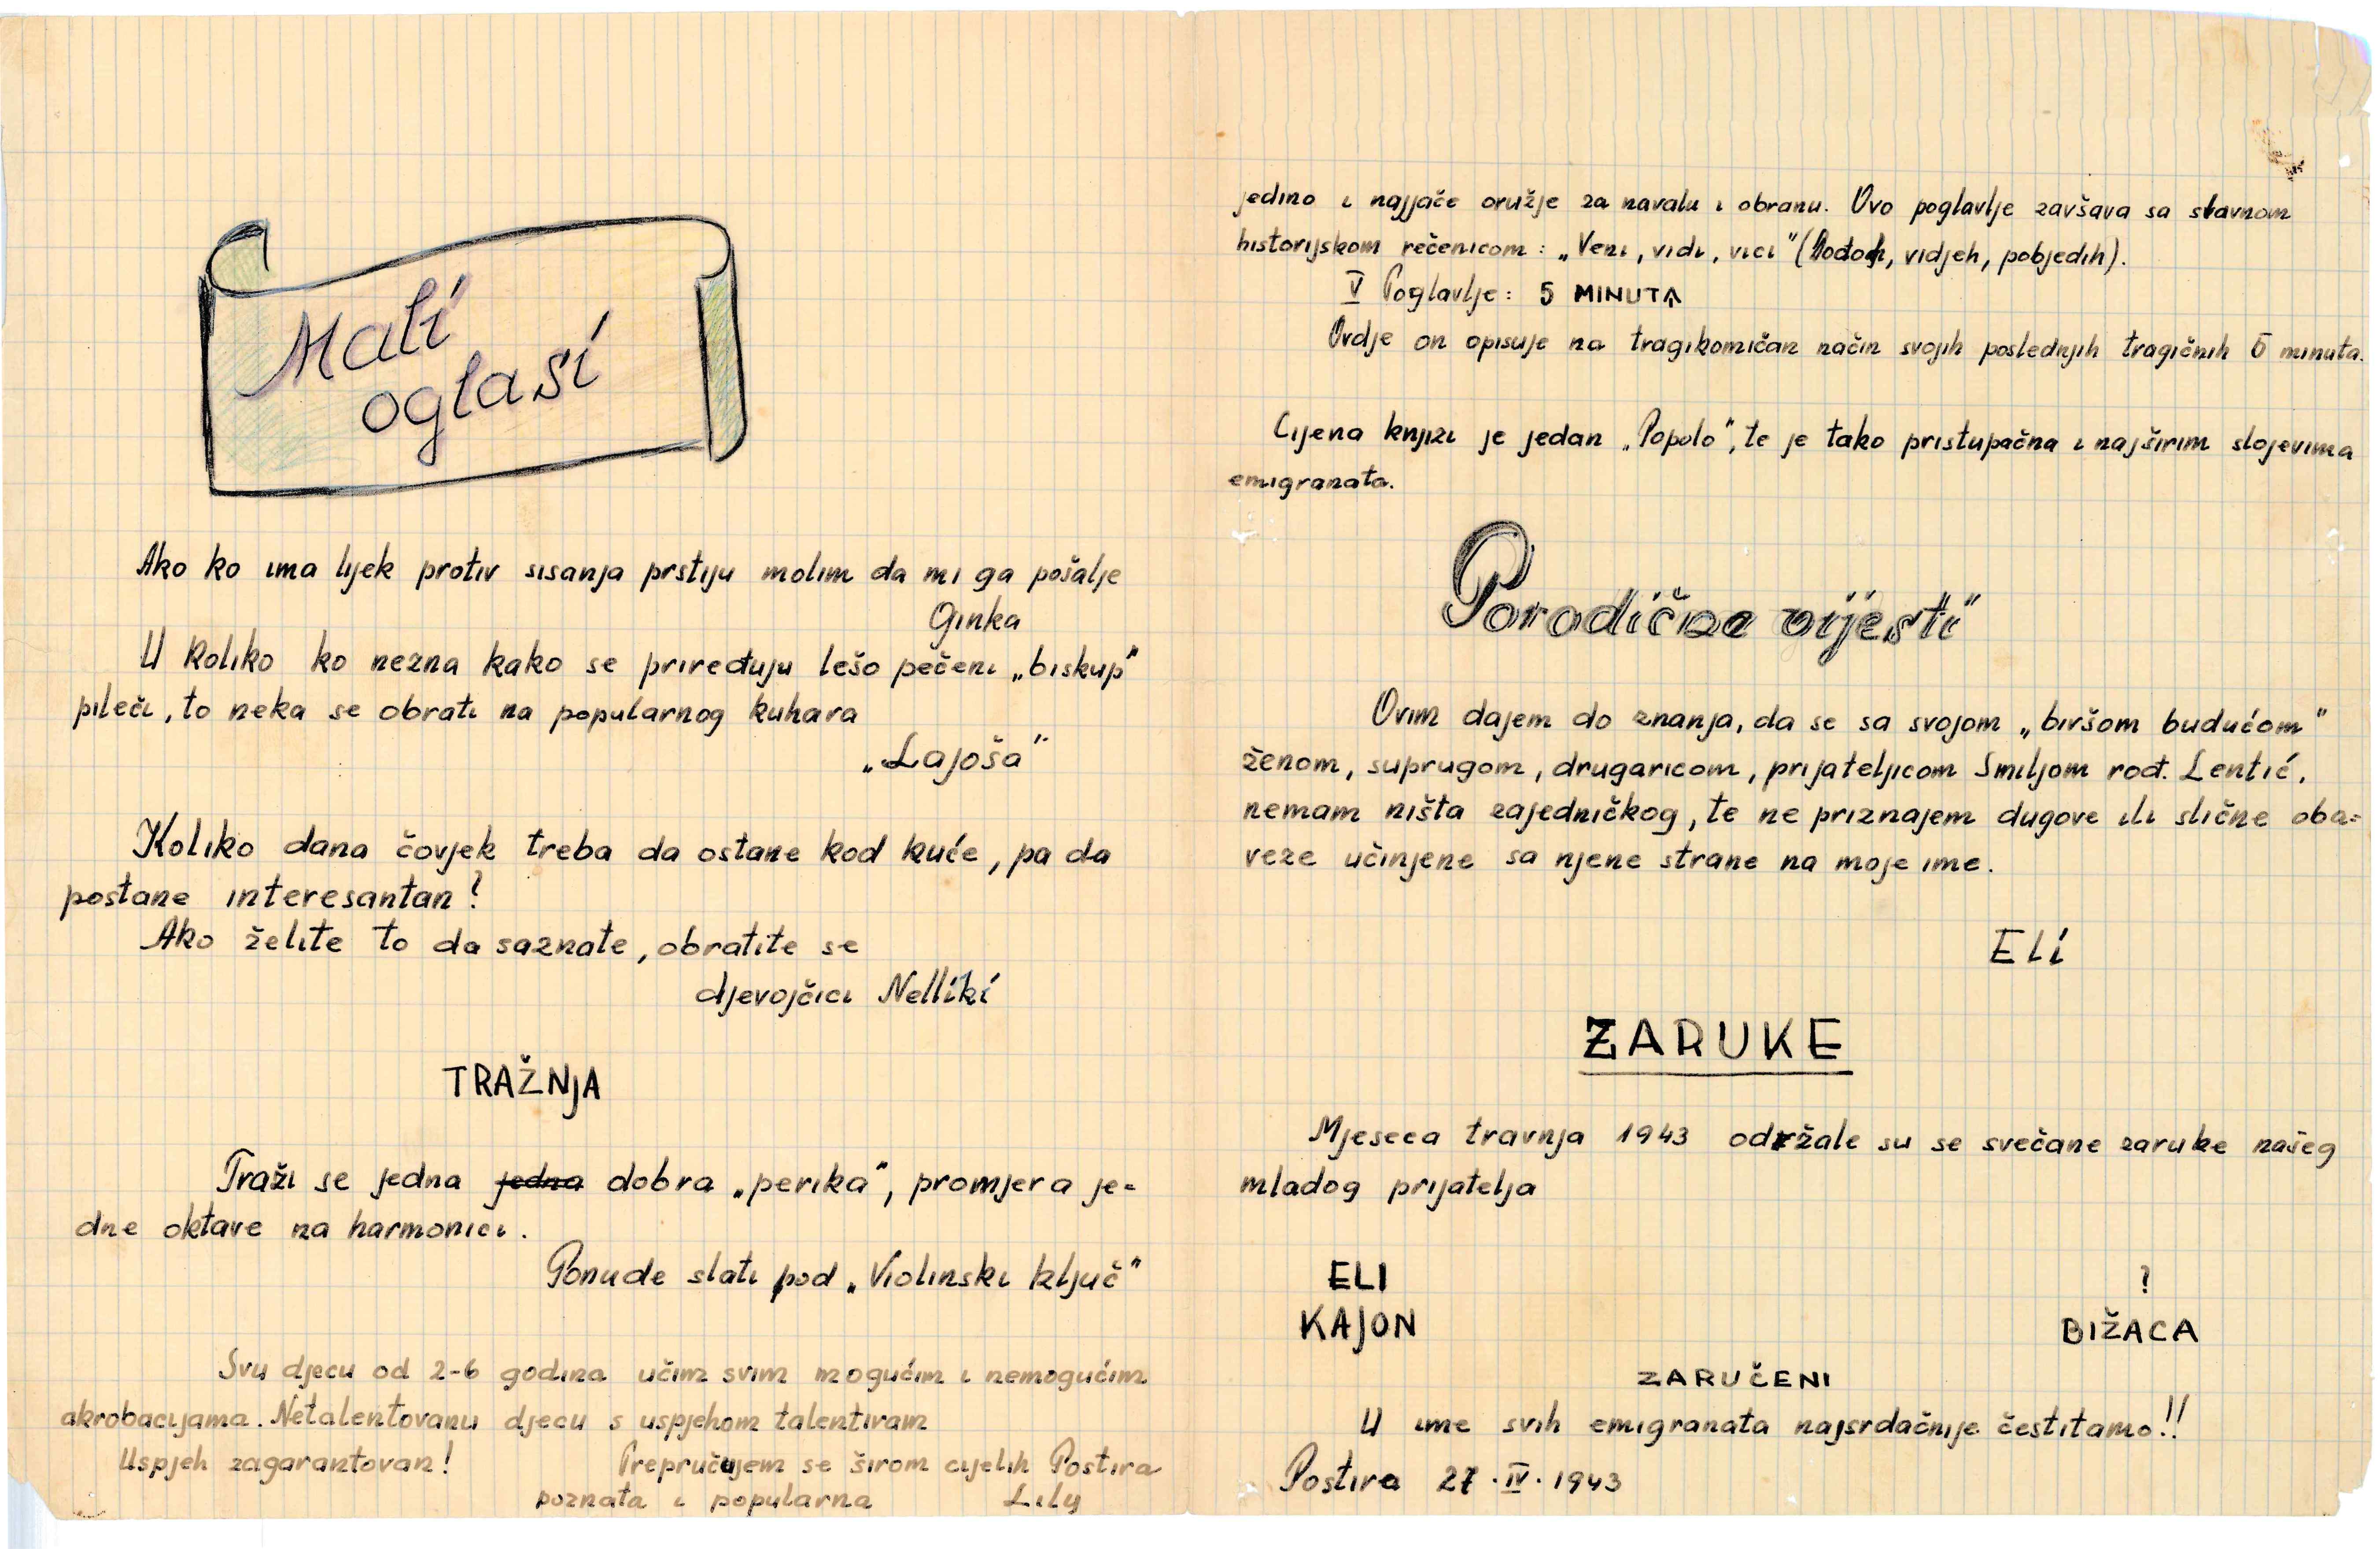 Mali
oglasi
Ako ko ima lijek protiv sisanja prstiju molim da mi ga pošalje
Ginka
U koliko ko nezna kako se priređuju lešo pečeni „biskup"
pileči, to neka se obrati na popularnog kuhara
„Lajoša"
Koliko dana čovjek treba da ostane kod kuće, pa da
postane interesantan?
Ako želite to da saznate, obratite se
djevojčici Nelliki
TRAŽNJA
Traži se jedna jedna dobra „perika", promjera je=
dne oktave na harmonici.
Ponude slati pod „Violinski ključ"
Svu djecu od 2-6 godina učim svim mogućim i nemogućim
akrobacijama. Netalentovanu djecu s uspjehom talentiram
Uspjeh zagarantovan! Prepručujem se širom cijelih Postira
poznata i popularna Lily
jedino i najjače oružje za navalu i obranu. Ovo poglavlje zavšava sa slavnom
historijskom rečenicom: „Veni, vidi, vici" (Dođoh, vidjeh, pobjedih).
V Poglavlje: 5 MINUTA
Ovdje on opisuje na tragikomičan način svojih poslednjih tragičnih 5 minuta.
Cijena knjizi je jedan „Popolo", te je tako pristupačna i najširim slojevima
emigranata.
Porodične vijesti"
Ovim dajem do znanja, da se sa svojom „bivšom budućom"
ženom, suprugom, drugaricom, prijateljicom Smiljom rođ. Lentić,
nemam ništa zajedničkog, te ne priznajem dugove ili slične oba=
veze učinjene sa njene strane na moje ime.
Eli
ZARUKE
Mjeseca travnja 1943 održale su se svečane zaruke našeg
mladog prijatelja
ELI ?
KAJON BIŽACA
ZARUČENI
U ime svih emigranata najsrdačnije čestitamo!!
Postira 27.IV.1943